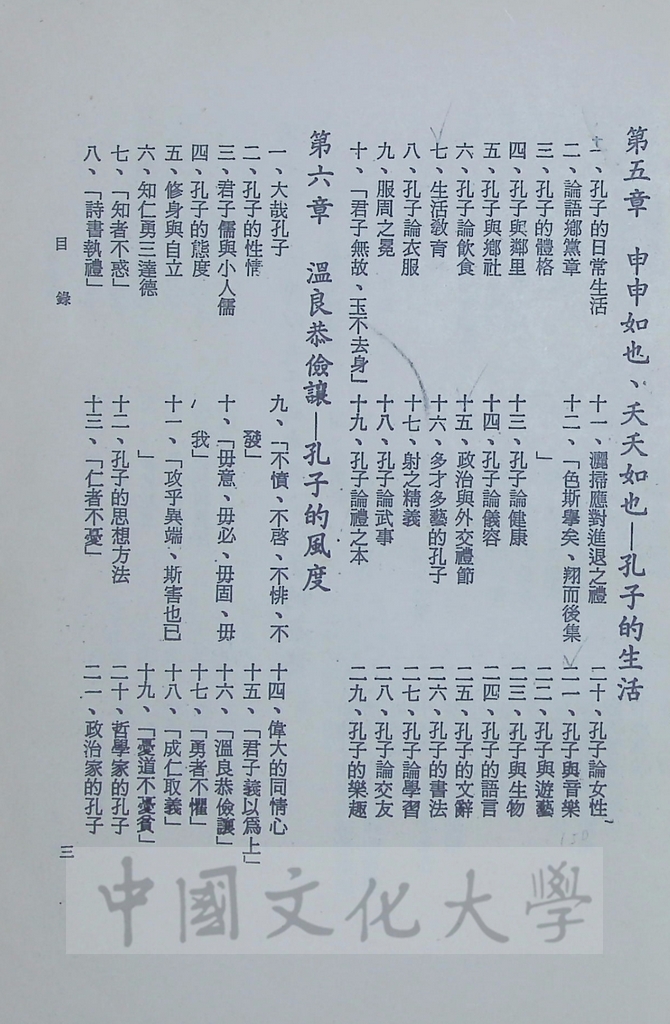 第五章　申申如也、夭夭如也—孔子的生活
一、孔子的日常生活
二、論語鄉黨章
三、孔子的體格
四、孔子與鄰里
五、孔子與鄉社
六、孔子論飲食
七、生活敎育
八、孔子論衣服
九、服周之冕
十、「君子無故、玉不去身」
十一、灑掃應對進退之禮
十二、「色斯擧矣、翔而後集
」
十三、孔子論健康
十四、孔子論儀容
十五、政治與外交禮節
十六、多才多藝的孔子
十七、射之精義
十八、孔子論武事
十九、孔子論禮之本
二十、孔子論女性
二一、孔子與音樂
二二、孔子與遊藝
二三、孔子與生物
二四、孔子的語言
二五、孔子的文辭
二六、孔子的書法
二七、孔子論學習
二八、孔子論交友
二九、孔子的樂趣
第六章　溫良恭儉讓—孔子的風度
一、大哉孔子
二、孔子的性情
三、君子儒與小人儒
四、孔子的態度
五、修身與自立
六、知仁勇三達德
七、「知者不惑」
八、「詩書執禮」
九、「不憤、不啓、不悱、不
發」
十、「毋意、毋必、毋固、毋
我」
十一、「攻乎異端、斯害也已
」
十二、孔子的思想方法
十三、「仁者不憂」
十四、偉大的同情心
十五、「君子義以爲上」
十六、「溫良恭儉讓」
十七、「勇者不懼」
十八、「成仁取義」
十九、「憂道不憂貧」
二十、哲學家的孔子
二一、政治家的孔子
目錄
三
中國文化大學